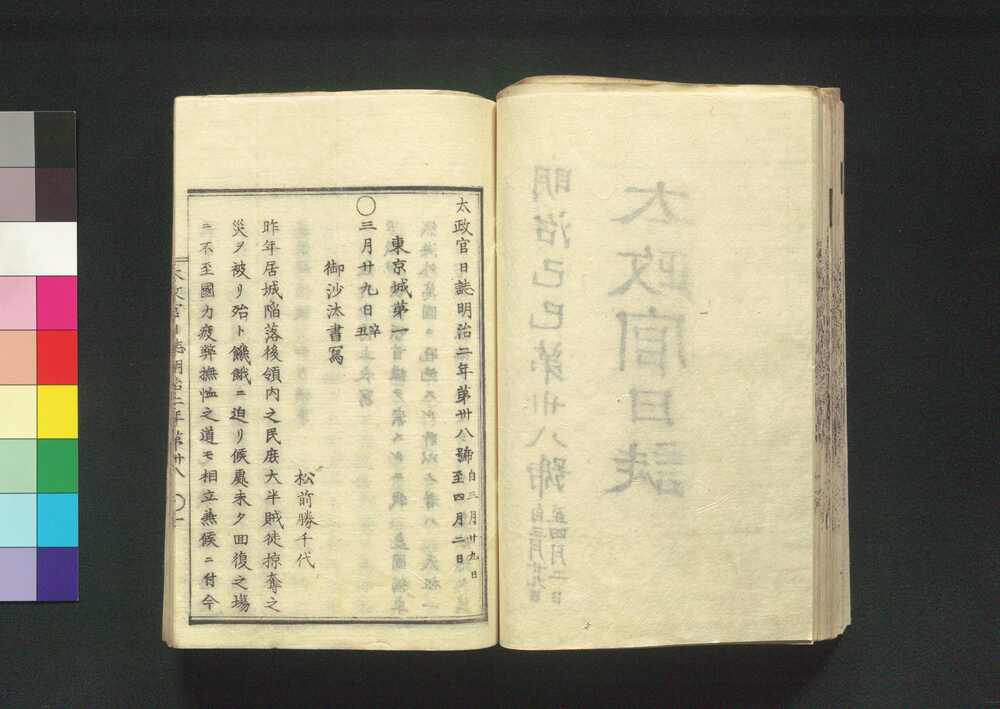 太政官日誌明治二年第卅八號 自三月廿九日至四月二日
東京城第一
〇三月廿九日 辛丑
御沙汰書寫
松前勝千代
昨年居城陥落後領内之民庶大半賊徒掠奪之
災ヲ被リ殆ト饑餓ニ迫リ候處未タ回復之場
ニ不至國力疲弊撫恤之道モ相立兼候ニ付今
太政官日誌明治二年第卅八 〇一
太政官日誌
明治己巳第卅八號 自三月廿九日至四月二日